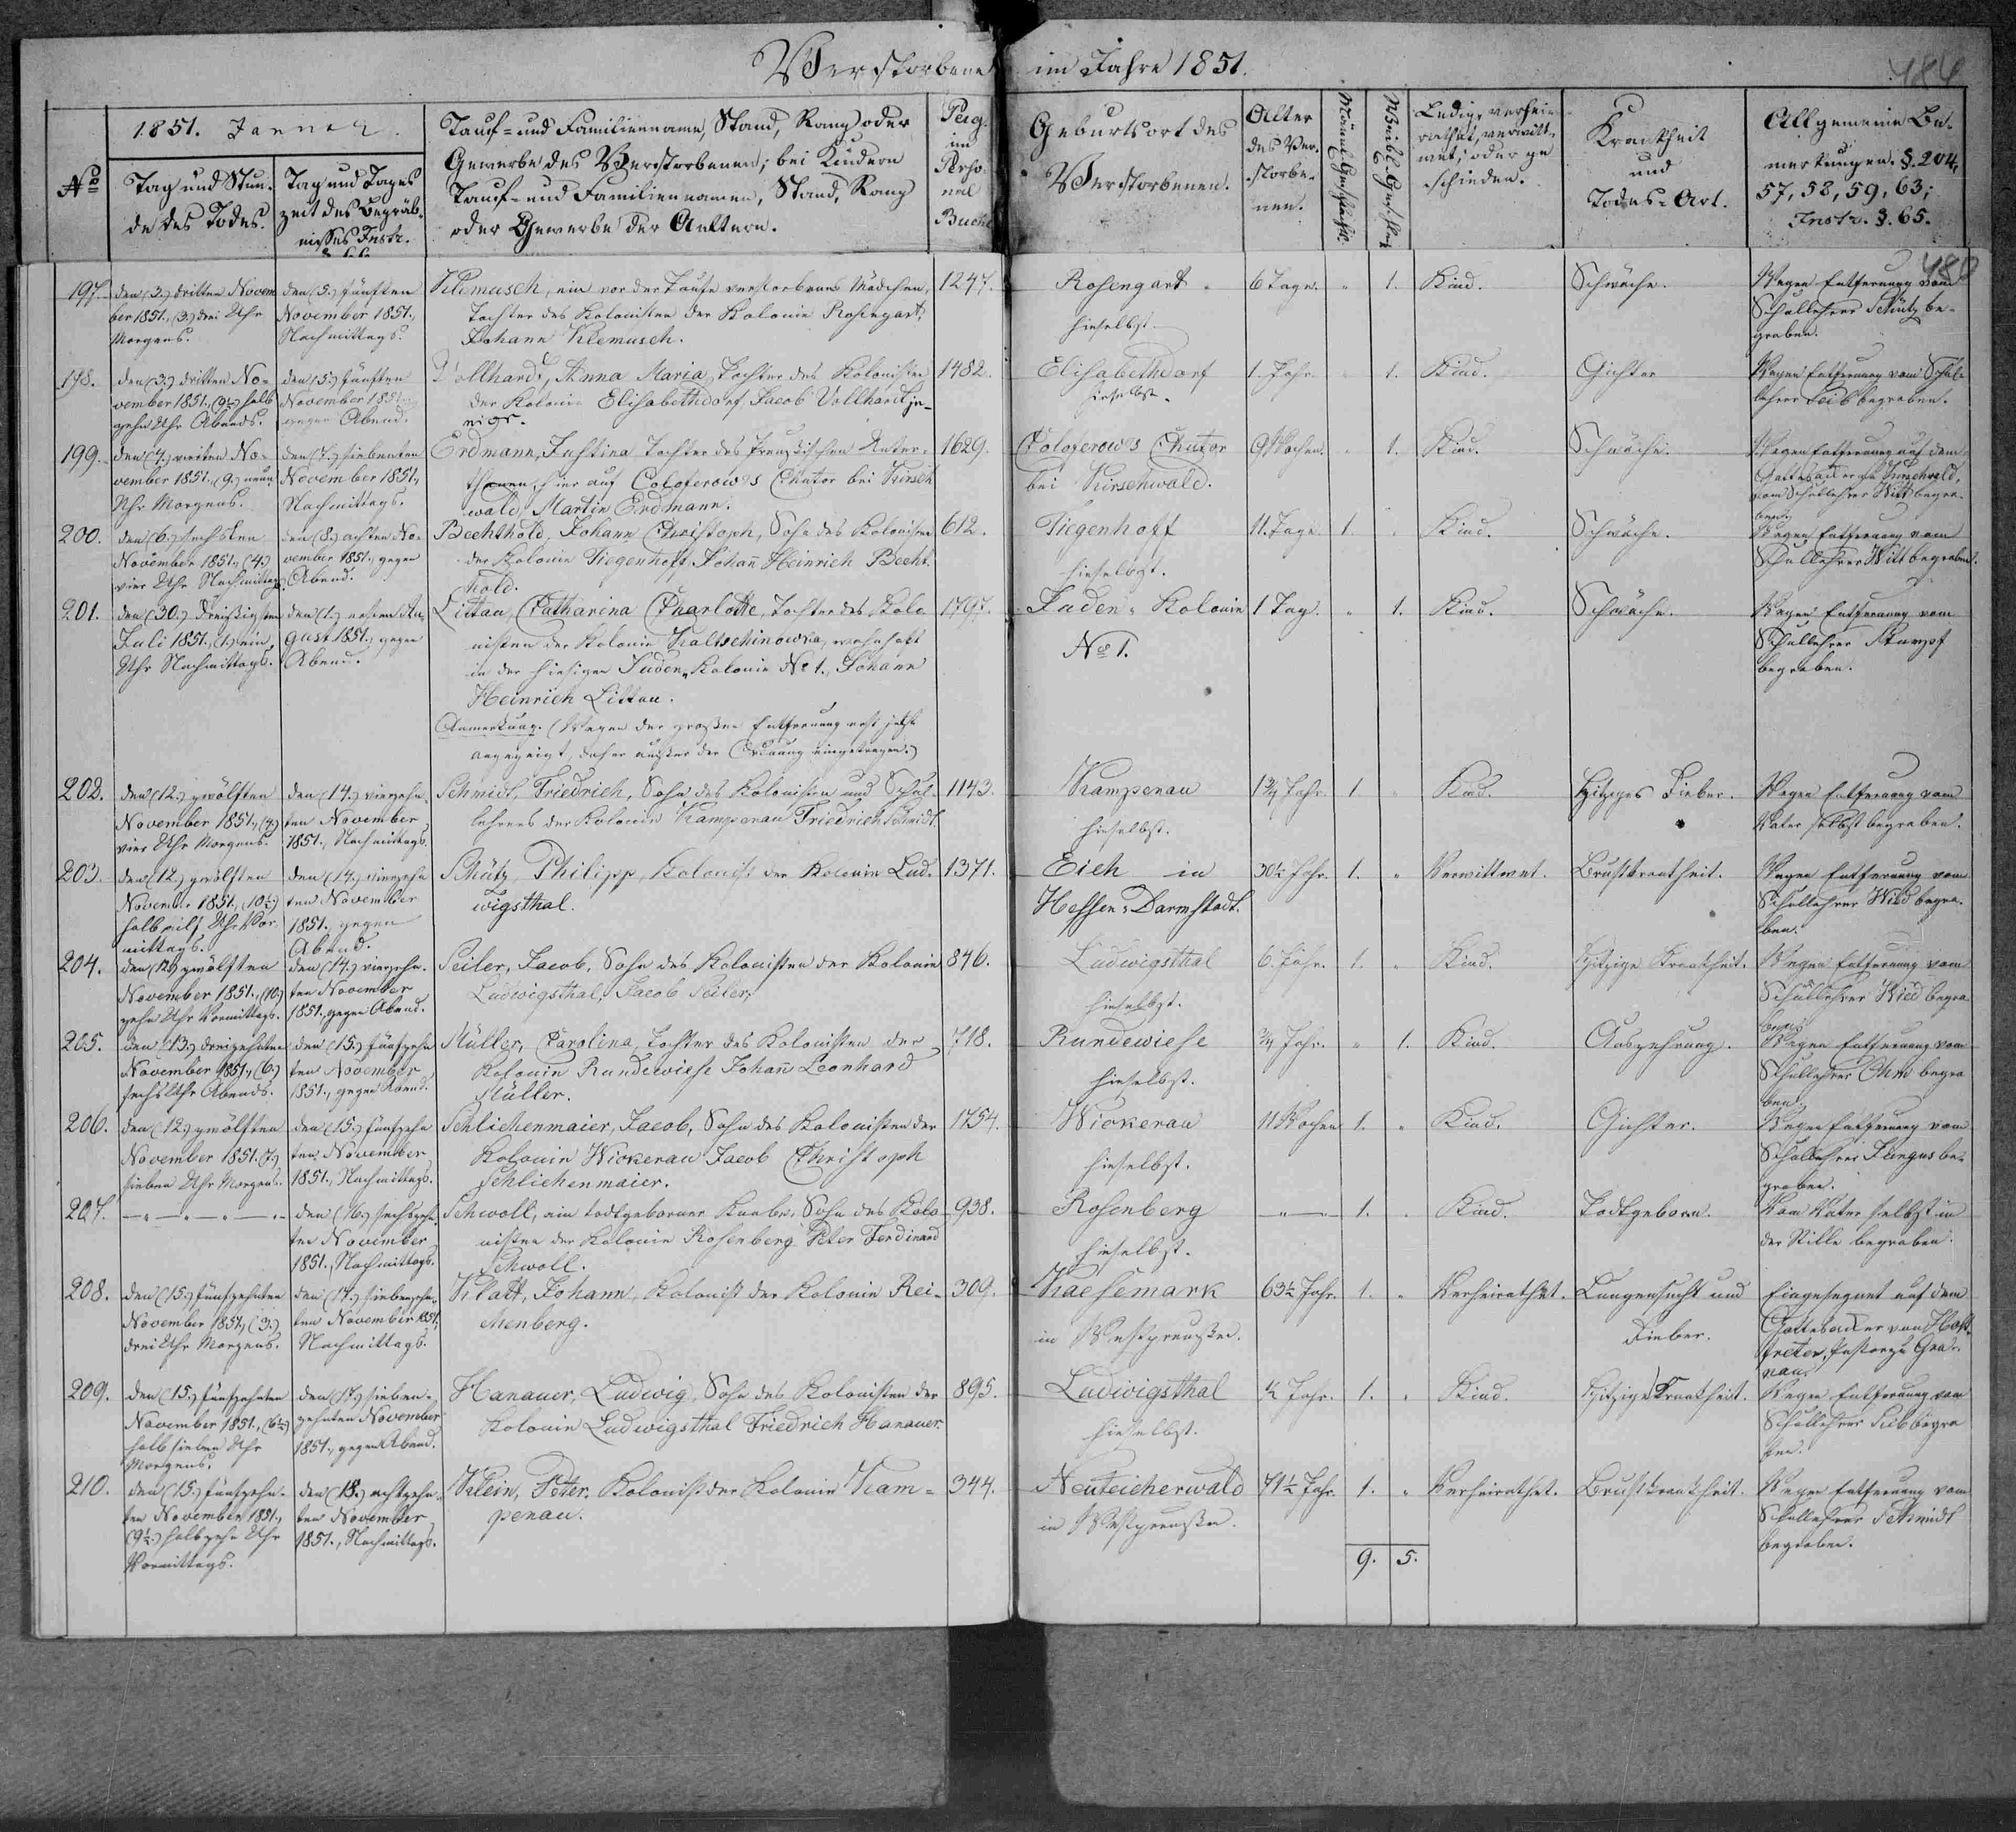 Verstorbene im Jahre 1851.
484
1851. Januar.
No
Tag und Stun-
de des Todes.
Tag und Tages
zeit des Begräb-
nisses Instr.
Tauf- und Familienname, Stand, Rang oder
Gewerbe des Verstorbenen; bei Kindern
Tauf- und Familiennamen, Stand, Rang
oder Gewerbe der Aeltern.
Pag.
im
Perso-
nal
Buche
Geburtsort des
Verstorbenen.
Alter
des Ver-
storbe-
nen.
Männl. Geschlecht.
Weibl. Geschlecht
Ledig, verhei-
rathet, verwitt-
wet, oder ge
schieden.
Krankheit
und
Todes-Art.
Allgemeine Be-
merkungen. §. 204,
57, 58, 59, 63;
Instr. §. 65.
480
197.
den (3.) dritten Novem
ber 1851., (3.) drei Uhr
Morgens.
den (5.) fünften
November 1851.,
Nachmittags.
Klemusch, ein vor der Taufe verstorbenes Mädchen,
Tochter des Kolonisten der Kolonie Rosengart,
Johann Klemusch.
1247.
Rosengart
hieselbst.
6 Tage.
1.
Kind.
Schwäche.
Wegen Entfernung vom
Schullehrer Schütz be-
graben.
198.
den (3.) dritten No-
vember 1851. (9½) halb
zehn Uhr Abends.
den (5.) fünften
November 1851.,
gegen Abend.
Vollhardt, Anna Maria, Tochter des Kolonisten
der Kolonie Elisabethdorf Jacob Vollhardt ju-
nior.
1482.
Elisabethdorf
hieselbst.
1. Jahr.
1.
Kind.
Gichter
Wegen Entfernung vom Schul-
lehrer Leib begraben.
199.
November 1851. (9.) neun
Uhr Morgens.
den (7.) siebenten
November 1851.,
Nachmittags.
Erdmann, Justina Tochter des Preußischen Unter-
thanen, hier auf Cologerow's Chutor bei Kirsch
wald, Martin Erdmann.
1629.
Cologerow's Chutor
bei Kirschwald.
9 Wochen.
1.
Kind.
Schwäche.
Wegen Entfernung auf dem
Gottesacker zu Kirschwald,
vom Schullehrer Witt begra-
ben.
200.
den (6.) sechsten
November 1851., (4.)
vier Uhr Nachmittags.
den (8.) achten No-
vember 1851., gegen
Abend.
Bechthold, Johann Christoph, Sohn des Kolonisten
der Kolonie Tiegenhoff, Johann Heinrich Becht-
hold.
612.
Tiegenhoff
hieselbst.
11. Tage.
1.
Kind.
Schwäche.
Wegen Entfernung vom
Schullehrer Witt begraben.
201.
den (30.) dreißigsten
Juli 1851. (1.) ein
Uhr Nachmittags.
den (1.) ersten Au-
gust 1851., gegen
Abend.
Littau, Catharina Charlotte, Tochter des Kolo
nisten der Kolonie Kaltschinowka, wohnhaft
in der hiesigen Juden-Kolonie No 1., Johann
Heinrich Littau.
Anmerkung. (Wegen der großen Entfernung erst jetzt
angezeigt, daher außer der Ordnung eingetragen.)
1797.
Juden-Kolonie
No 1.
1 Tag.
1.
Kind.
Schwäche.
Wegen Entfernung vom
Schullehrer Stumpf
begraben.
202.
den (12.) zwölften
November 1851., (4.)
vier Uhr Morgens.
den (14.) vierzehn-
ten November
1851., Nachmittags.
Schmidt, Friedrich, Sohn des Kolonisten und Schul-
lehrers der Kolonie Kampenau Friedrich Schmidt.
1143.
Kampenau
hieselbst.
1¾ Jahr.
1
Kind.
Hitziges Fieber.
Wegen Entfernung vom
Vater selbst begraben.
203.
den (12.) zwölften
November 1851., (10½)
halb eilf Uhr Vor-
mittags.
den (14.) vierzehn
ten November
1851., gegen
Abend.
Schütz, Philipp, Kolonist der Kolonie Lud-
wigsthal.
1371.
Eich in
Hessen-Darmstadt.
30½ Jahr.
1.
Verwittwet.
Brustkrankheit.
Wegen Entfernung vom
Schullehrer Wied begra-
ben.
204.
den (12) zwölften
November 1851., (10.)
zehn Uhr Vormittags.
den (14.) vierzehn-
ten November
1851., gegen Abend.
Seiler, Jacob, Sohn des Kolonisten der Kolonie
Ludwigsthal, Jacob Seiler,
846.
Ludwigsthal
hieselbst.
6. Jahr.
1.
Kind.
Hitzige Krankheit.
Wegen Entfernung vom
Schullehrer Wied begra
ben.
205.
den (13.) dreizehnten
November 1851., (6.)
sechs Uhr Abends.
den (15.) fünfzehn
ten November
1851., gegen Abend.
Müller, Carolina, Tochter des Kolonisten der
Kolonie Rundewiese Johann Leonhard
Müller.
718.
Rundewiese
hieselbst.
¾ Jahr.
1.
Kind.
Auszehrung.
Wegen Entfernung vom
Schullehrer Ohm begra
ben.
206.
den (12.) zwölften
November 1851. (7.)
sieben Uhr Morgens.
den (15.) fünfzehn
ten November
1851., Nachmittags.
Schlichenmaier, Jacob, Sohn des Kolonisten der
Kolonie Wickerau Jacob Christoph
Schlichenmaier.
1754.
Wickerau
hieselbst.
11 Wochen
1.
Kind.
Gichter.
Wegen Entfernung vom
Schullehrer Fungus be-
graben.
207.
den (16.) sechszehn
ten November
1851., Nachmittags.
Schwoll, ein todtgeborner Knabe, Sohn des Kolo
nisten der Kolonie Rosenberg Peter Ferdinand
Schwoll.
938.
Rosenberg
hieselbst.
1.
Kind.
Todtgeboren.
Vom Vater selbst in
der Stille begraben.
208.
den (15.) fünfzehnten
November 1851, (3.)
drei Uhr Morgens.
den (17.) siebenzehn-
ten November 1851,
Nachmittags.
Klatt, Johann, Kolonist der Kolonie Rei-
chenberg.
309.
Kaesemark
in Westpreußen.
63½ Jahr.
1.
Verheirathet.
Lungensucht und
Fieber.
Eingesegnet auf dem
Gottesacker von
Pastor zu Gru-
nau.
209.
den (15.) fünfzehnten
November 1851., (6½)
halb sieben Uhr
Morgens.
den (17.) sieben-
zehnten November
1851., gegen Abend.
Hanauer, Ludwig, Sohn des Kolonisten der
Kolonie Ludwigsthal Friedrich Hanauer.
895.
Ludwigsthal
hieselbst.
½ Jahr.
1.
Kind.
Hitzige Krankheit.
Wegen Entfernung vom
Schullehrer begra
ben.
210.
den (15.) fünfzehn-
ten November 1851.,
(9½.) halb zehn Uhr
Vormittags.
den (18.) achtzehn-
ten November
1851., Nachmittags.
Klein, Peter, Kolonist der Kolonie Kam-
penau.
344.
Neuteicherwald
in Westpreußen.
71½ Jahr.
1.
Verheirathet.
Brustkrankheit.
Wegen Entfernung vom
Schullehrer Schmidt
begraben.
9. 5.